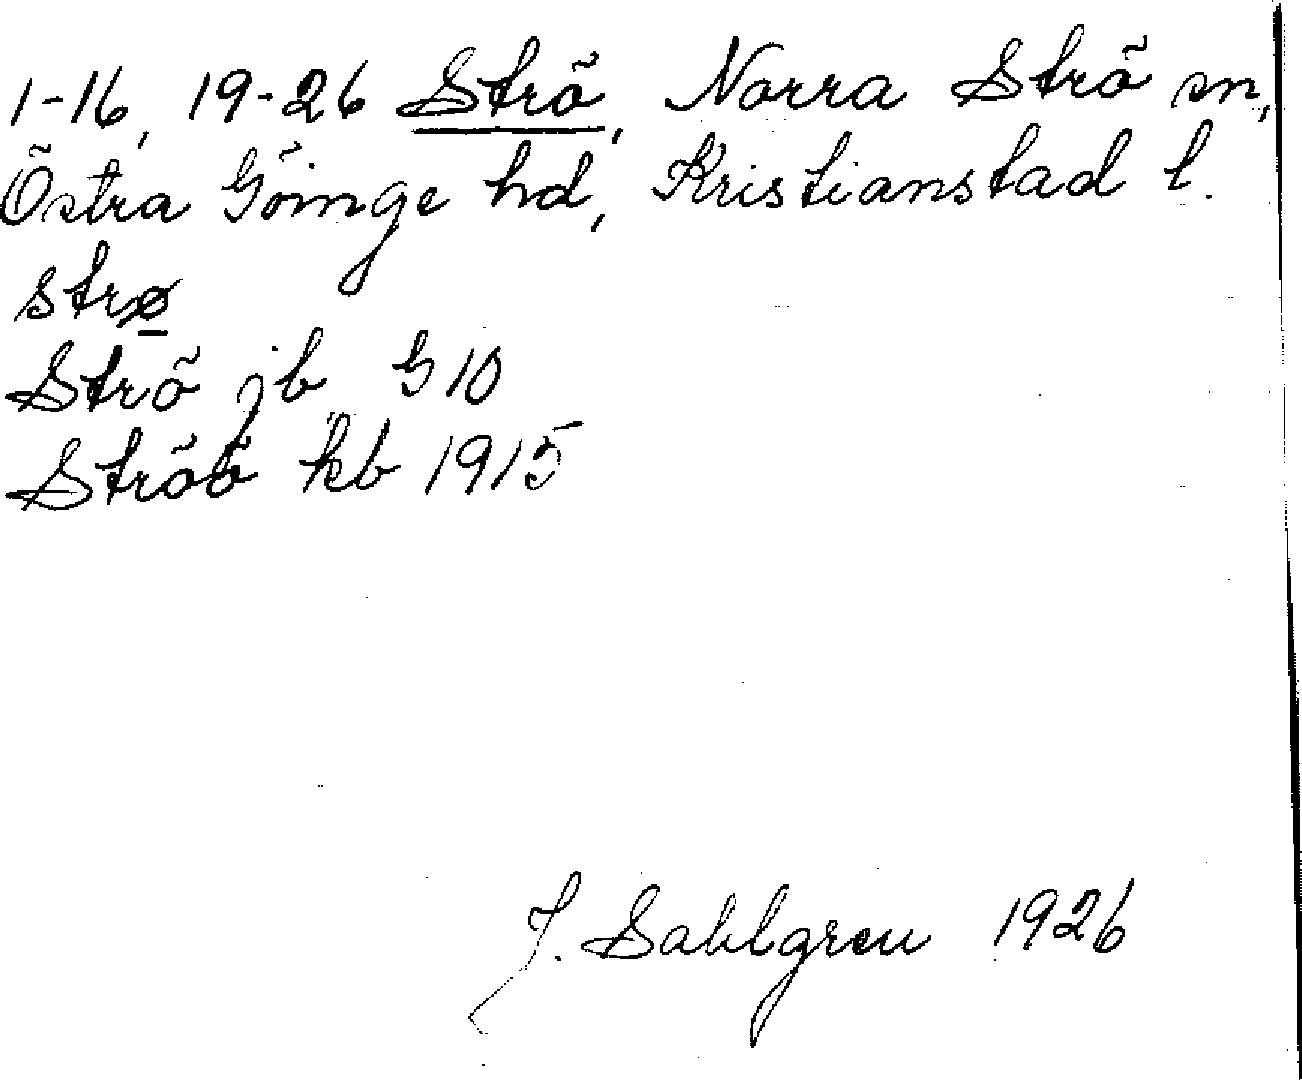 1-16, 19-26 Strö, Norra Strö sn,
Östra Göinge hd, Kristianstad l.
strø
Strö jb G 10
Ströö kb 1915
J. Sahlgren 1926